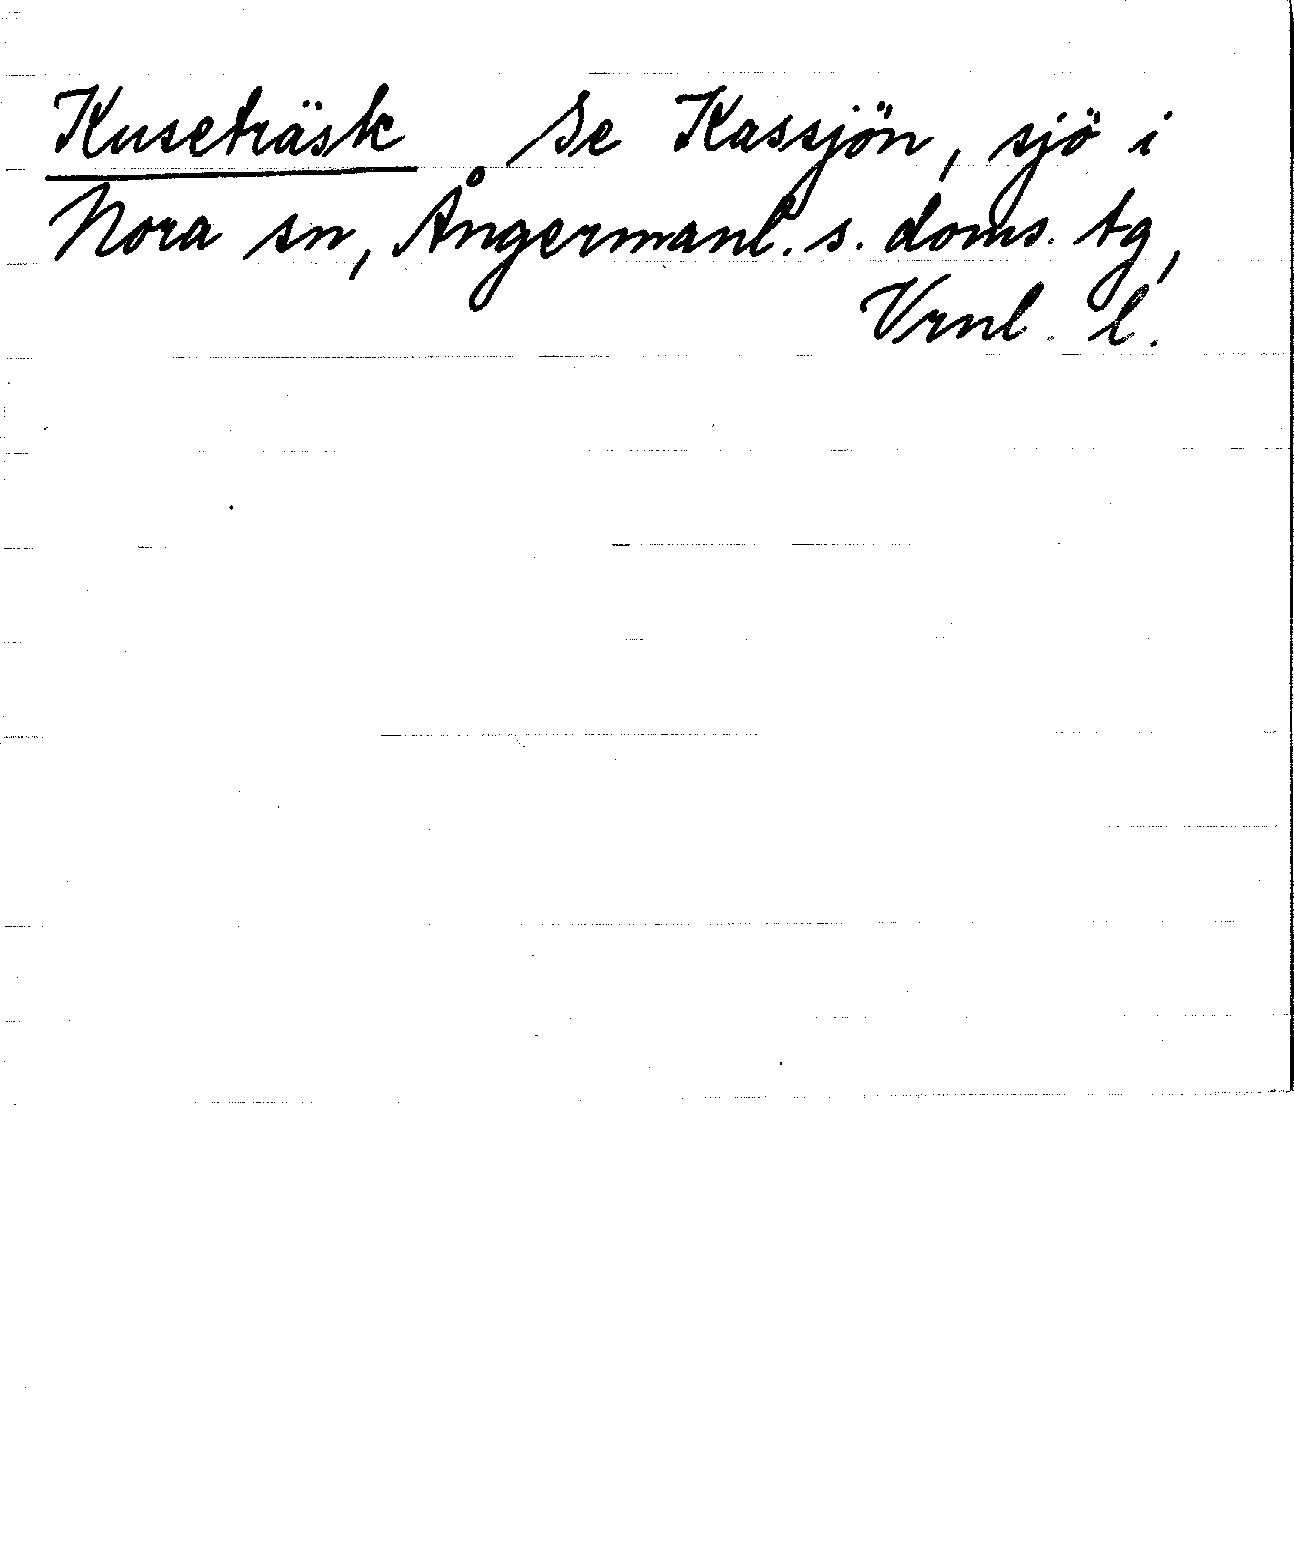 Kuseträsk se Kassjön, sjö i
Nora sn, Ångermanl. s. doms. tg,
Vrnl. l.